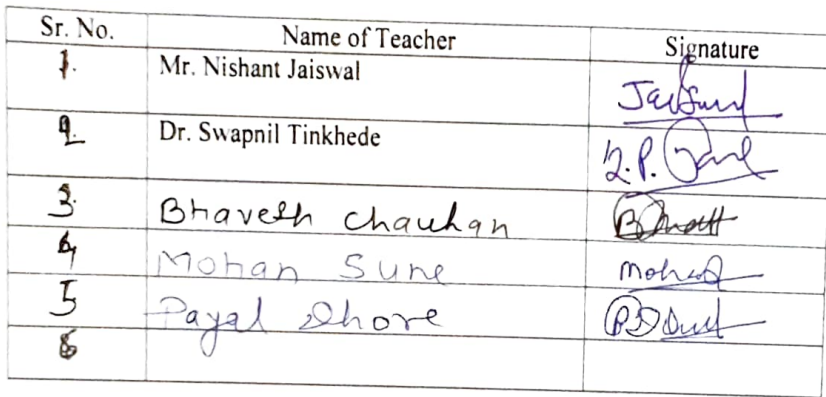 Sr. No. Name of Teacher Signature
1. Mr. Nishant Jaiswal
2 Dr. Swapnil Tinkhede
3. Bhavesh Chauhan
4 Mohan Sune
5 Payal Dhore